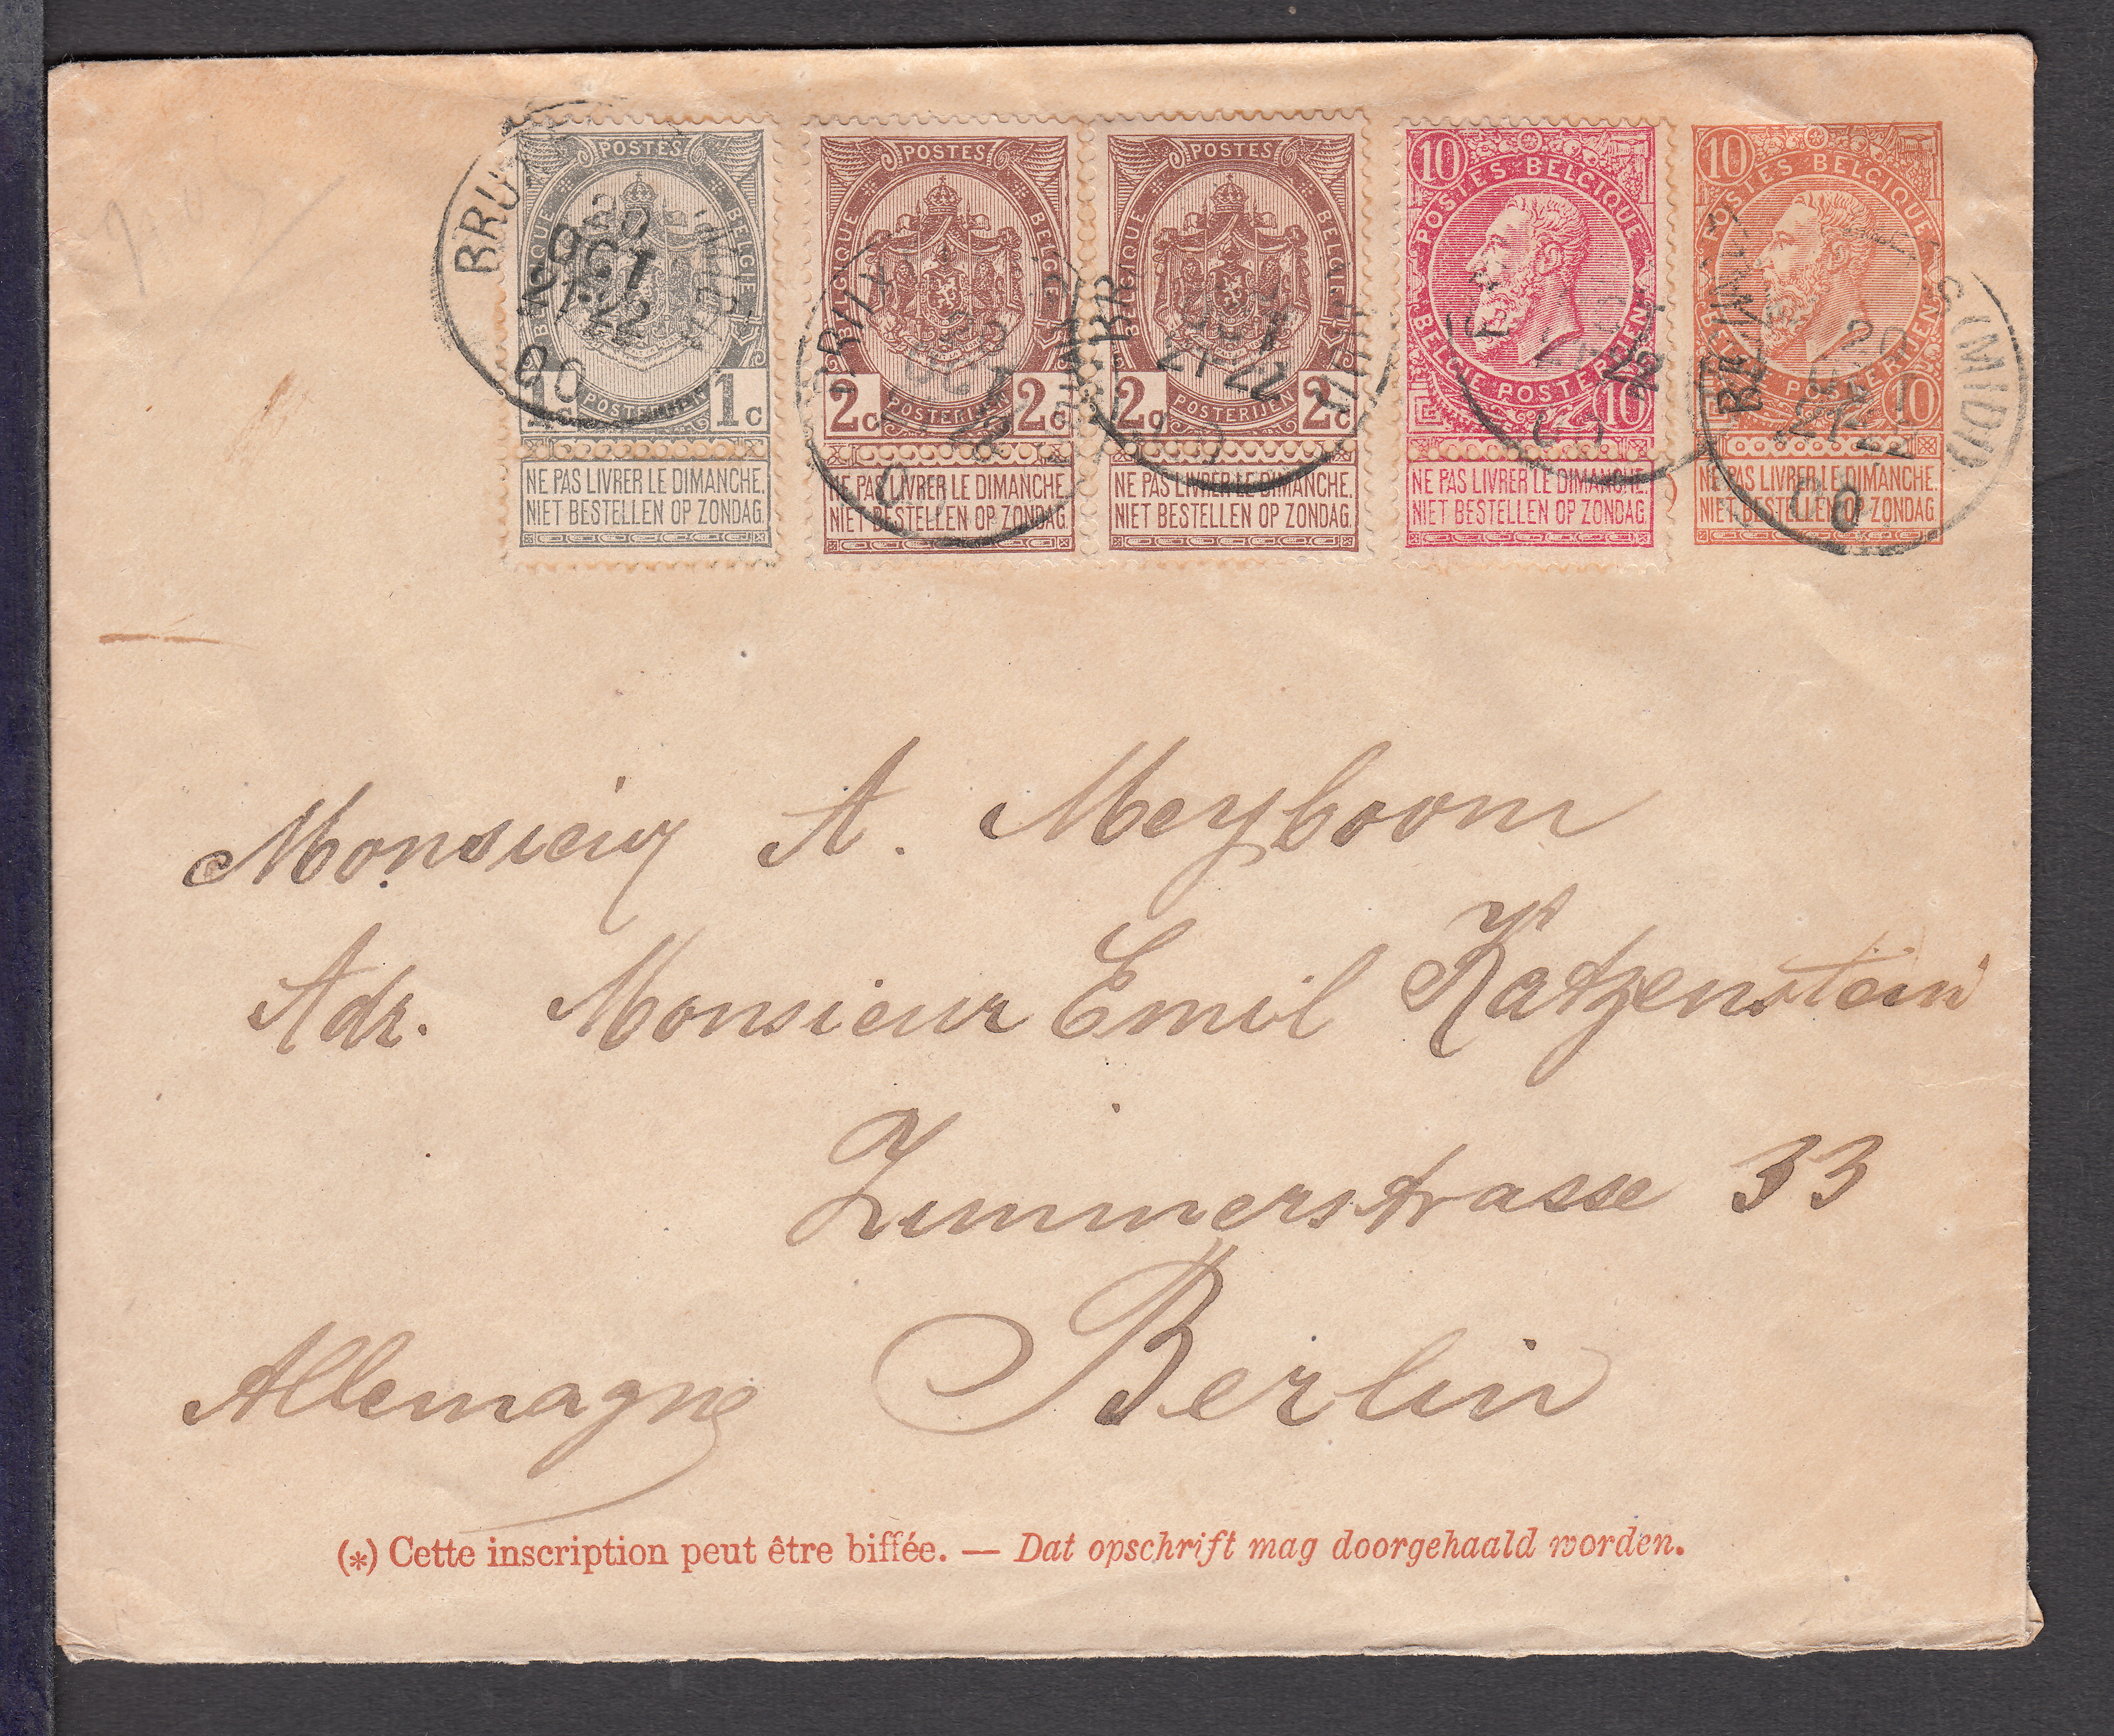 POSTES
BELGIQUE BELGIE
1c POSTERIJEN 1c
NE PAS LIVRER LE DIMANCHE.
NIET BESTELLEN OP ZONDAG.
POSTES
BELGIQUE BELGIE
2c POSTERIJEN 2c
NE PAS LIVRER LE DIMANCHE.
NIET BESTELLEN OP ZONDAG.
POSTES
BELGIQUE BELGIE
2c POSTERIJEN 2c
NE PAS LIVRER LE DIMANCHE.
NIET BESTELLEN OP ZONDAG.
10
POSTES BELGIQUE
BELGIE POSTERIJEN
10
NE PAS LIVRER LE DIMANCHE.
NIET BESTELLEN OP ZONDAG.
10
POSTES BELGIQUE
BELGIE POSTERIJEN
10
NE PAS LIVRER LE DIMANCHE.
NIET BESTELLEN OP ZONDAG.
20
OCT
21-22
00
(MIDI)
Monsieur A. Meyboom
Adr. Monsieur Emil Katzenstein
Zimmerstrasse 33
Berlin
Allemagne
(*) Cette inscription peut être biffée. — Dat opschrift mag doorgehaald worden.